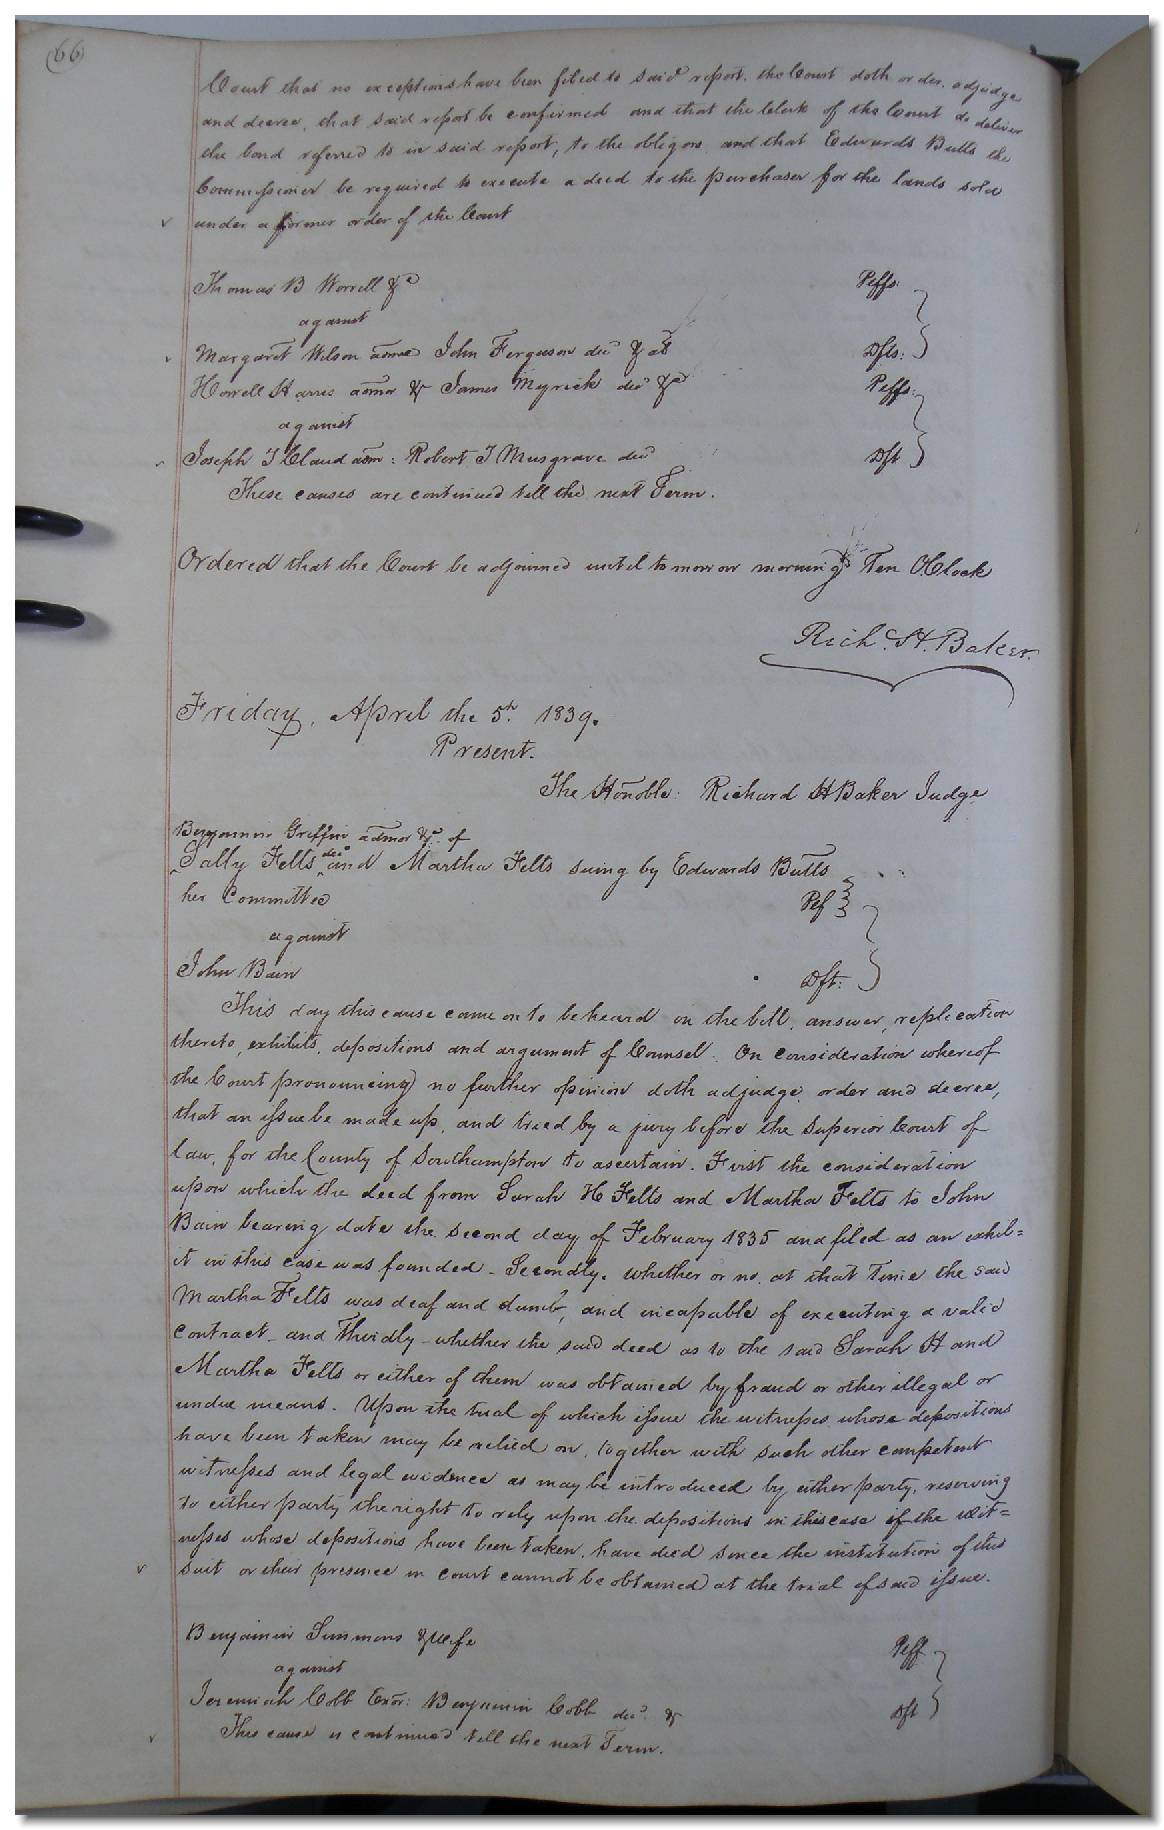 66
Court that no exceptions have been filed to said report, the Court doth order, adjudge
and decree, that said report be confirmed and that the Clerk of the Court do deliver
the bond referred to in said report, to the obligors and that Edwards Butts the
Commissioner be required to execute a deed to the purchaser for the lands sold
under a former order of the Court
Thomas B Worrell &c Peffs:
against
Margaret Wilson admx John Ferguson decd & al Dfts:
Howell Harris admr & James Myrick decd &c Peffs:
against
Joseph T Claud adm: Robert T Musgrave decd Dft
These causes are continued till the next Term.
Ordered that the Court be adjourned until tomorrow morning Ten OClock
Rich. H. Baker.
Friday, April the 5th 1839.
Present.
The Honoble: Richard H Baker Judge
Benjamin Griffin admor &c. of
Sally Felts decd and Martha Felts suing by Edwards Butts
her Committee Pef
against
John Bain Dft:
This day this cause came on to be heard on the bill, answer, replication
thereto, exhibits, depositions and argument of Counsel. On consideration whereof
the Court pronouncing no further opinion doth adjudge, order and decree,
that an issue be made up, and tried by a jury before the Superior Court of
law, for the County of Southampton to ascertain. First the consideration
upon which the deed from Sarah H Felts and Martha Felts to John
Bain bearing date the second day of February 1835 and filed as an exhib=
it in this case was founded – Secondly. whether or no, at that time the said
Martha Felts was deaf and dumb, and incapable of executing a valid
contract – and Thirdly – whether the said deed as to the said Sarah H and
Martha Felts or either of them was obtained by fraud or other illegal or
undue means. Upon the trial of which issue the witnesses whose depositions
have been taken may be relied on, together with such other competent
witnesses and legal evidence as may be introduced by either party, reserving
to either party the right to rely upon the depositions in this case if the wit=
nesses whose depositions have been taken, have died since the institution of this
suit or their presence in court cannot be obtained at the trial of said issue.
Benjamin Simmons & wife Peff
against
Jeremiah Cobb Exor: Benjamin Cobb decd. & Dft
This cause is continued till the next Term.